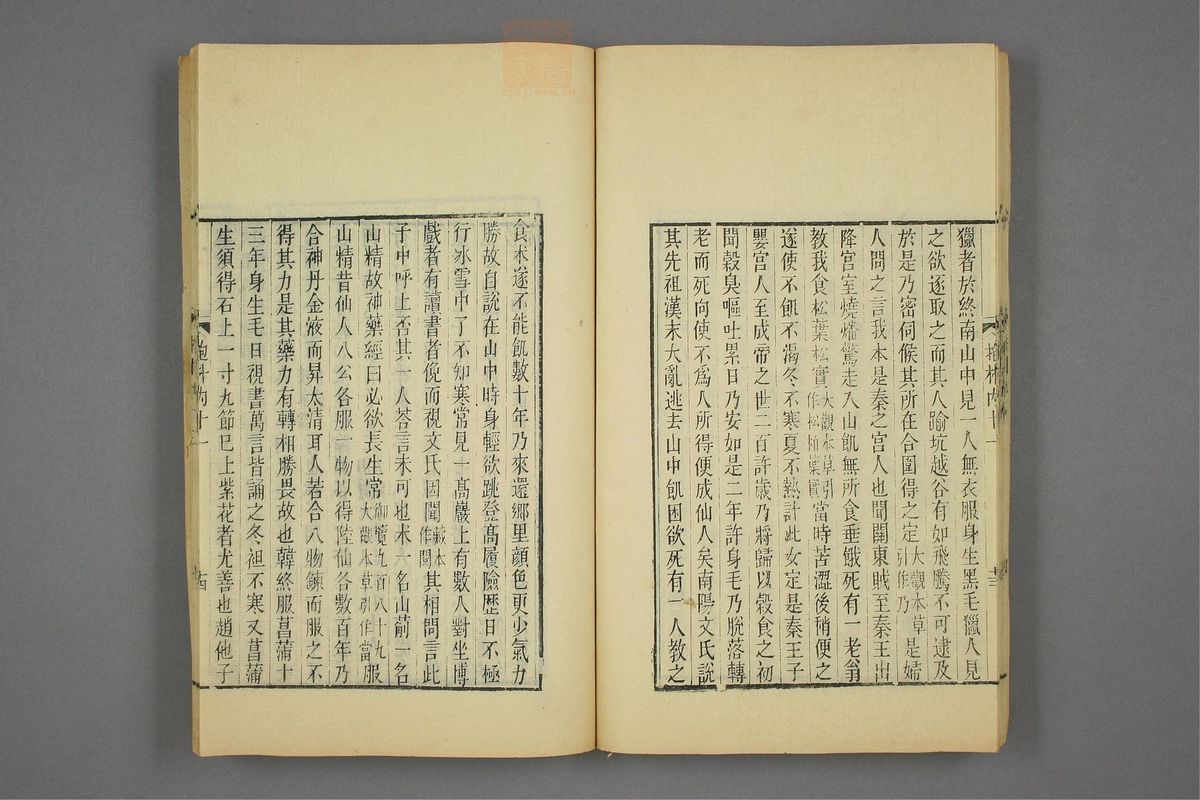 獵者於終南山中見一人無衣服身生黑毛獵人見
之欲逐取之而其人踰坑越谷有如飛騰不可逮及
於是乃密伺候其所在合圍得之定大觀本草引作乃是婦
人問之言我本是秦之宮人也聞關東賊至秦王出
降宮室燒燔驚走入山飢無所食垂餓死有一老翁
教我食松葉松實大觀本草引作松柏葉實當時苦澀後稍便之
遂使不飢不渴冬不寒夏不熱計此女定是秦王子
嬰宮人至成帝之世二百許歲乃將歸以穀食之初
聞穀臭嘔吐累日乃安如是二年許身毛乃脫落轉
老而死向使不爲人所得便成仙人矣南陽文氏說
其先祖漢末大亂逃去山中飢困欲死有一人教之
食朮遂不能飢數十年乃來還鄉里顏色更少氣力
勝故自說在山中時身輕欲跳登高履險歷日不極
行冰雪中了不知寒常見一高巖上有數人對坐博
戲者有讀書者俛而視文氏因聞藏本作閱其相問言此
子中呼上否其一人荅言未可也朮一名山薊一名
山精故神藥經曰必欲長生常御覽九百八十九大觀本草引作當服
山精昔仙人八公各服一物以得陸仙各數百年乃
合神丹金液而昇太清耳人若合八物鍊而服之不
得其力是其藥力有轉相勝畏故也韓終服菖蒲十
三年身生毛日視書萬言皆誦之冬袒不寒又菖蒲
生須得石上一寸九節巳上紫花者尤善也趙他子